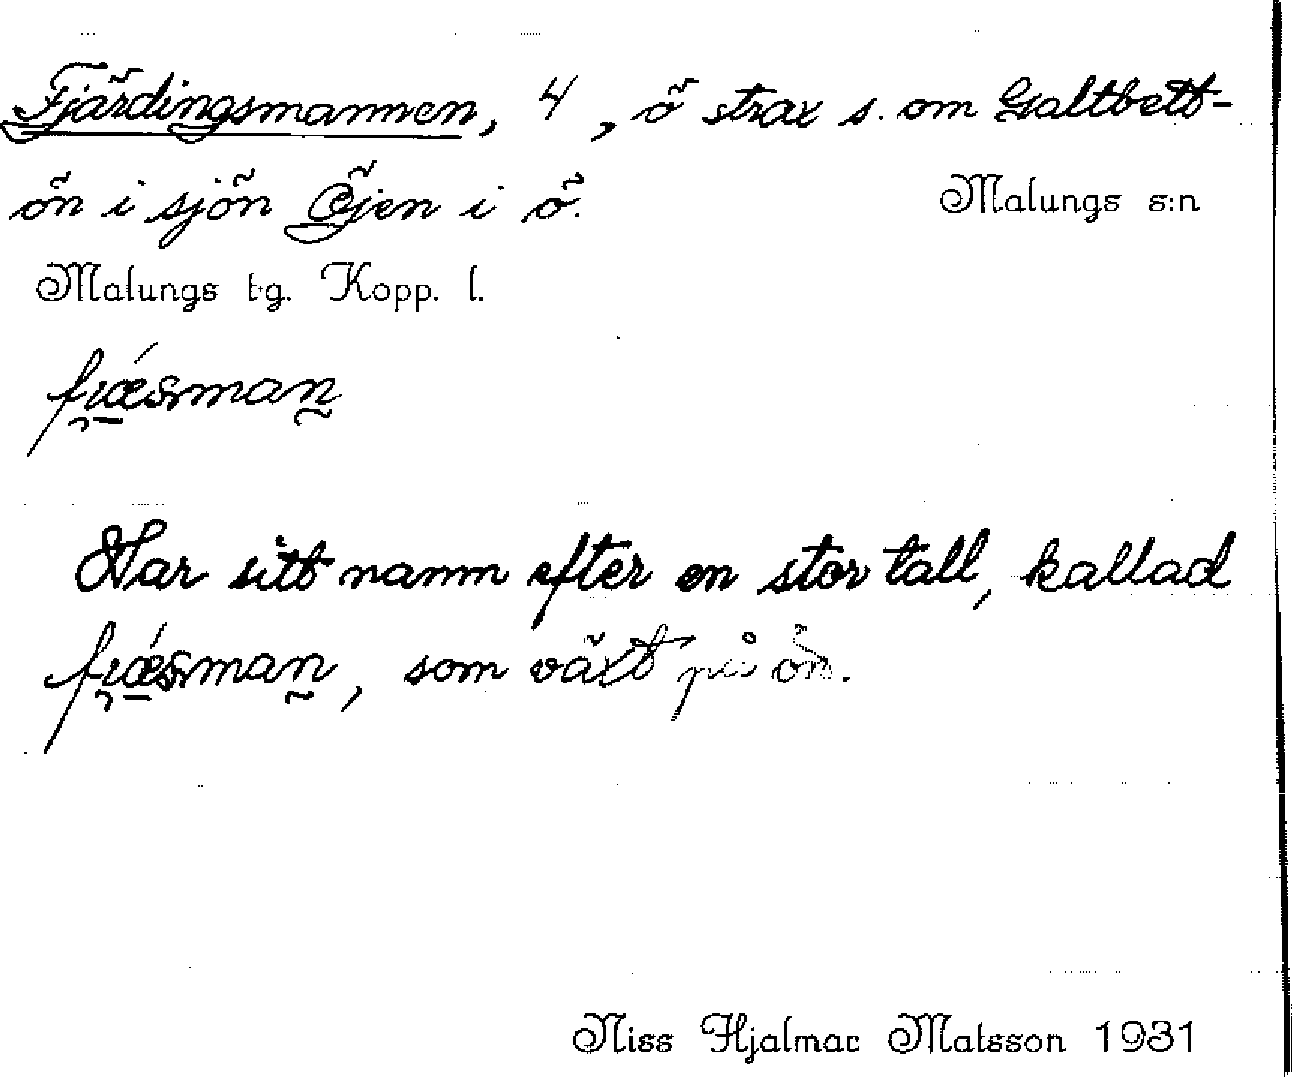 Fjärdingsmannen, 4, ö strax s. om Galtbett-
ön i sjön Öjen i ö.
Malungs s:n
Malungs tg. Kopp. l.
Har sitt namn efter en stor tall, kallad
som växt på ön.
Niss Hjalmar Matsson 1931